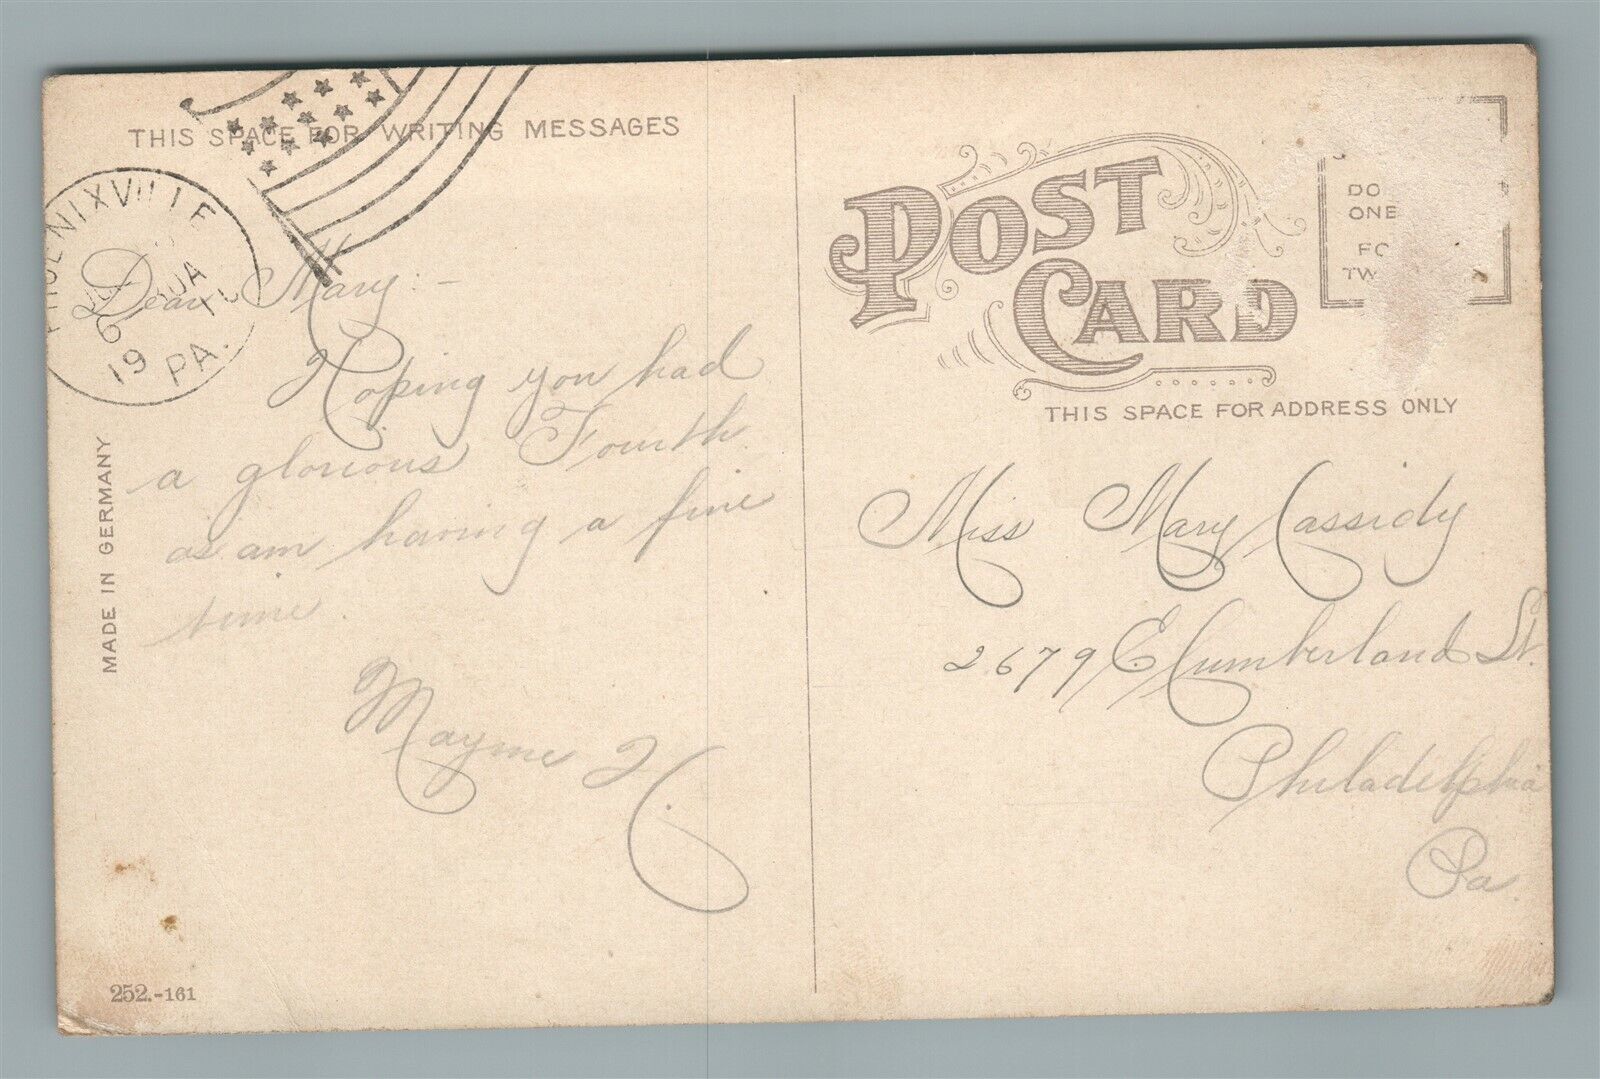 THIS SPACE FOR WRITING MESSAGES
PHOENIXVILLE
6
19
PA.
Dear Mary:-
Hoping you had
a glorious Fourth
as am having a fine
time.
Mayme
MADE IN GERMANY
252.-161
POST
CARD
DO
ONE
FO
TW
THIS SPACE FOR ADDRESS ONLY
Miss Mary Cassidy
2679 E Cumberland St.
Philadelphia
Pa.